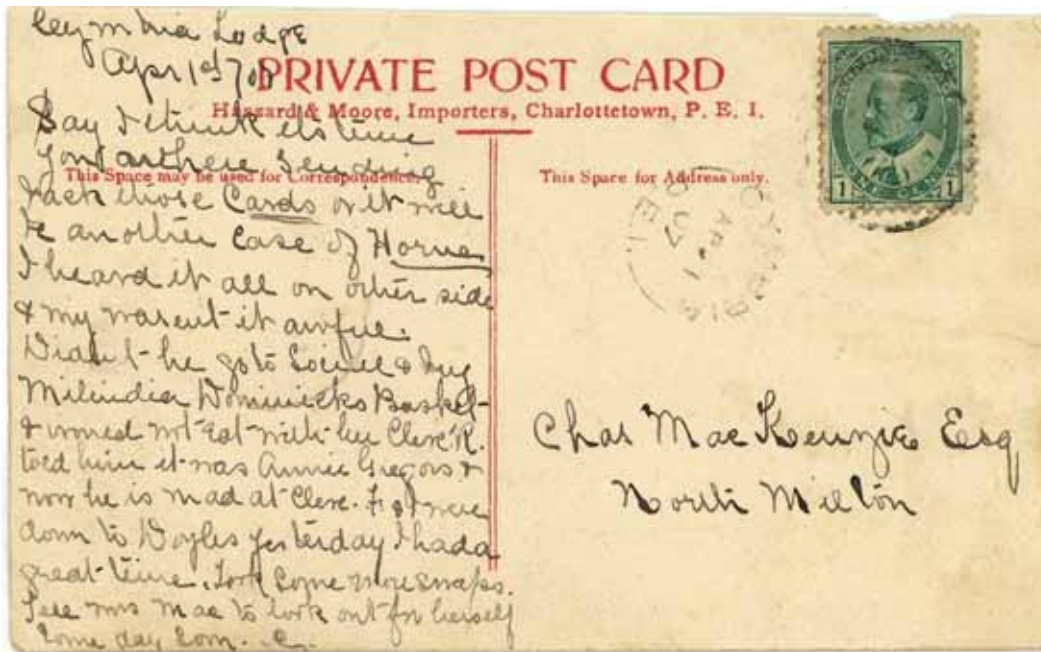 Cymbria Lodge
Apr 1st 7
PRIVATE POST CARD
Haszard & Moore, Importers, Charlottetown, P. E. I.
This Space may be used for Correspondence.
This Space for Address only.
Say I think its time
you sending
back those Cards or it will
be another case of Horne
I heard it all on other side
& my wasent it awful.
Didn't he go to & buy
Milindia Dominicks Basket
& woued not eat with her Cleve R.
told him it was Annie Gregors &
now he is mad at Cleve. F & I were
down to Doyles yesterday & had a
great time. Took some more snaps.
Tell Mrs Mac to look out for herself
some day soon. C.
CYMBRIA
AP 1
07
P. E. I.
1
1
Chas MacKenzie Esq
North Milton